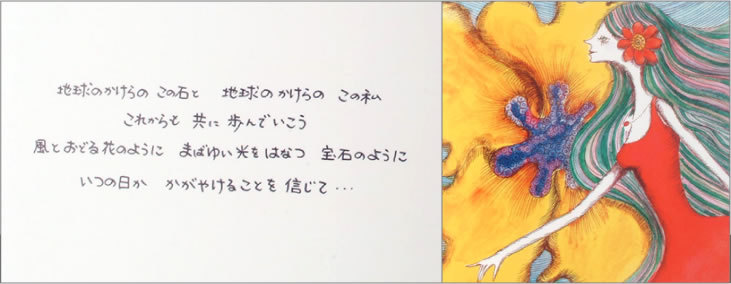 地球のかけらの この石と 地球のかけらの この私
これからも 共に 歩んでいこう
風とおどる花のように まばゆい光をはなつ 宝石のように
いつの日か かがやけることを 信じて・・・